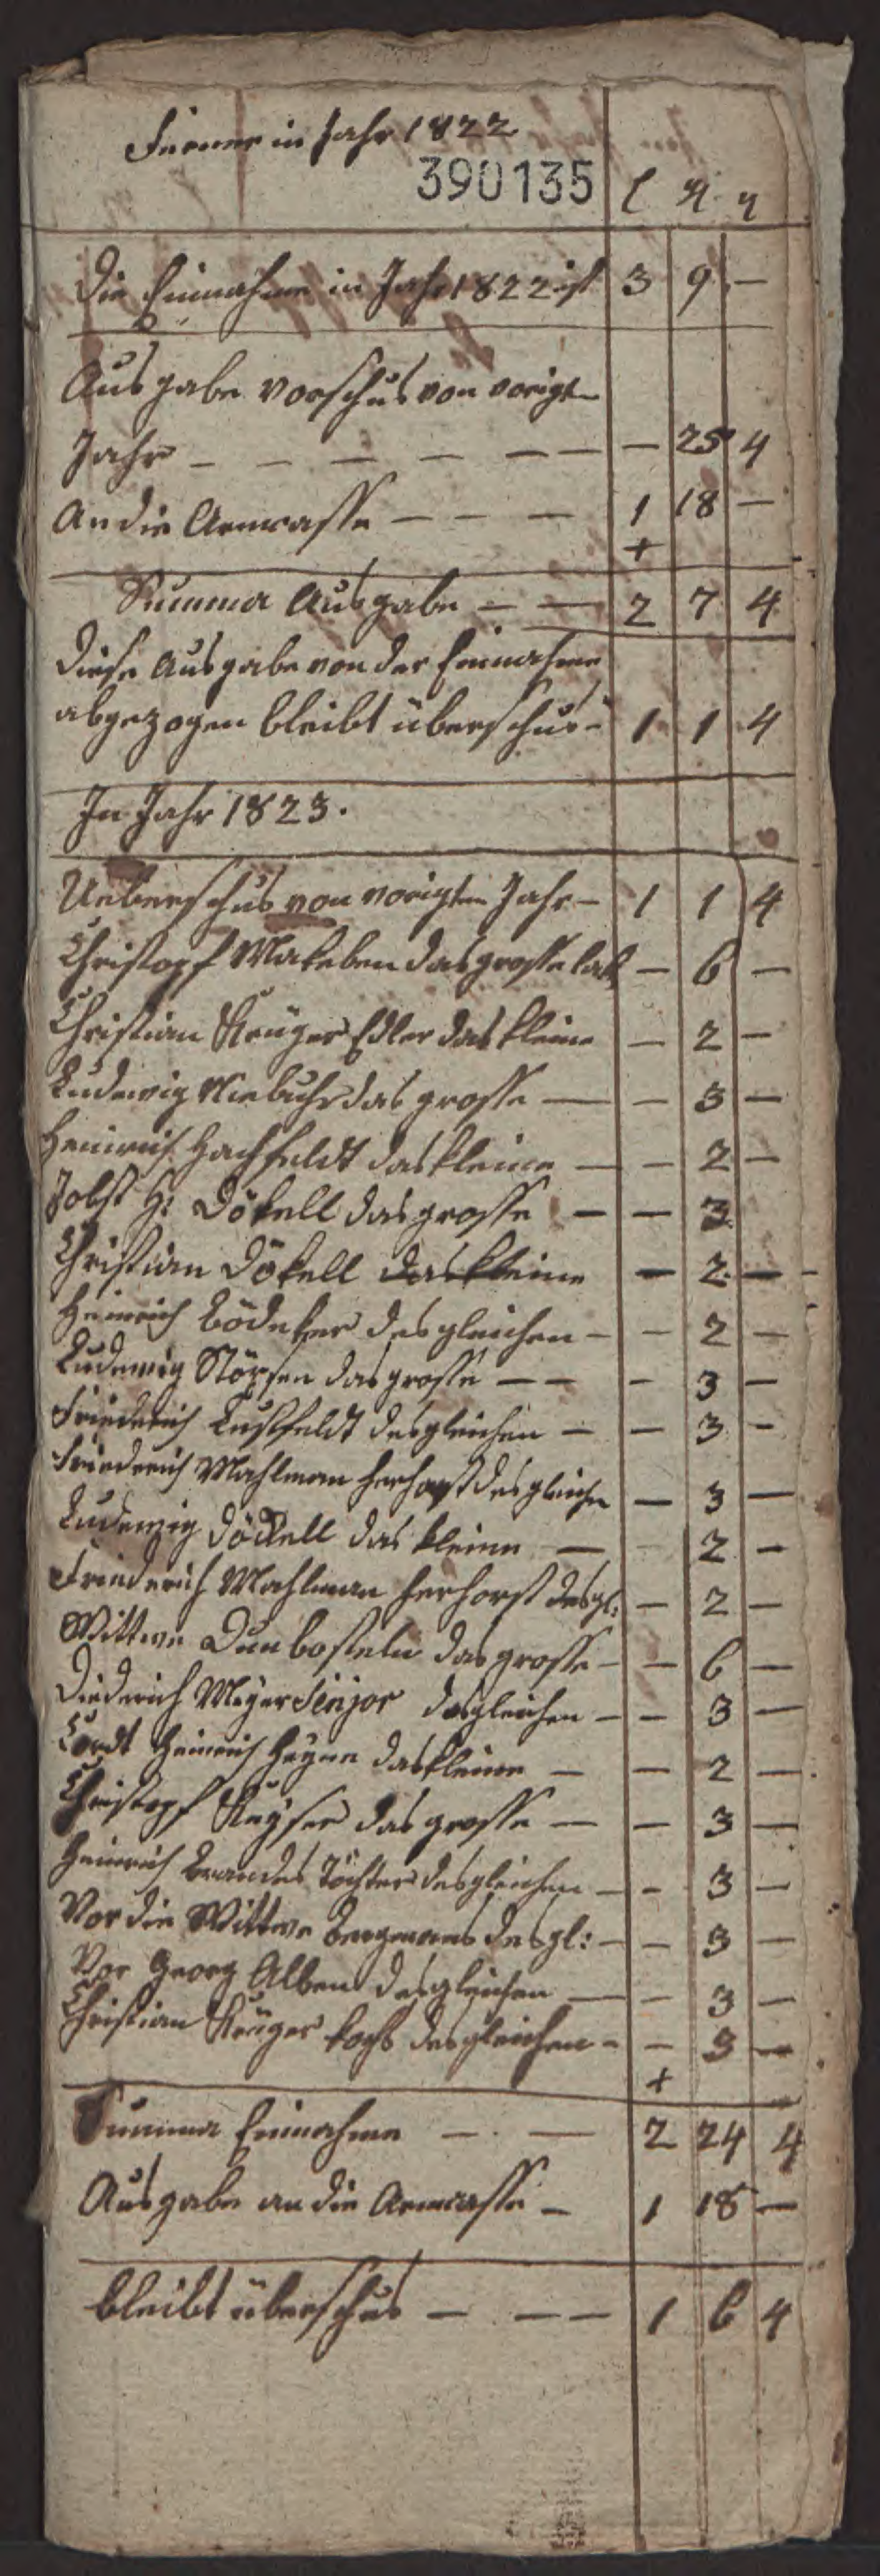 Ferner in Jahr 1822
390135
die Einnahme in Jahr 1822 ist 3 9 —
Ausgabe vorschus von vorigten
Jahr — — — — — — — 25 4
An die Armcasse — — — 1 18 —
+
Summa Ausgabe — — 2 7 4
diese Ausgabe von der Einnahme
abgezogen bleibt überschus - 1 1 4
In Jahr 1823.
Ueberschus von vorigten Jahr — 1 1 4
Christopf Makeben das grosse — 6 —
Christian Krüger Edler das kleine — 2 —
Ludewig Niebuhr das grosse — — 3 —
Heinrich Hachfeldt das kleine — — 2 —
Jobst H: Dökell das grosse — — 3
Christian Dökell das kleine — 2 —
Heinrich Bödeker desgleichen — — 2 —
Ludewig das grosse — — — 3 —
Friederich Lustfeldt desgleichen — — 3 —
Friederich Mahlman herhorst desgleichen — 3 —
Ludewig Döckell das kleine — — 2 —
Friederich Mahlman herhorst desgl: — 2 —
Wittwe Dunbosteln das grosse — — 6 —
Diederich Meyer Senjor desgleichen — — 3 —
Cordt Heinrich Heyne das kleine — — 2 —
Christopf Keyser das grosse — — 3 —
Heinrich Brandes Töchter desgleichen — — 3 —
Vor die Wittwe Bergmans desgl: — — 3 —
Vor Georg Alben desgleichen — — 3 —
Christian Krüger desgleichen — — 3 —
+
Summa Einnahme — — 2 24 4
Ausgabe an die Armcasse — 1 18 —
bleibt überschus — — — 1 6 4